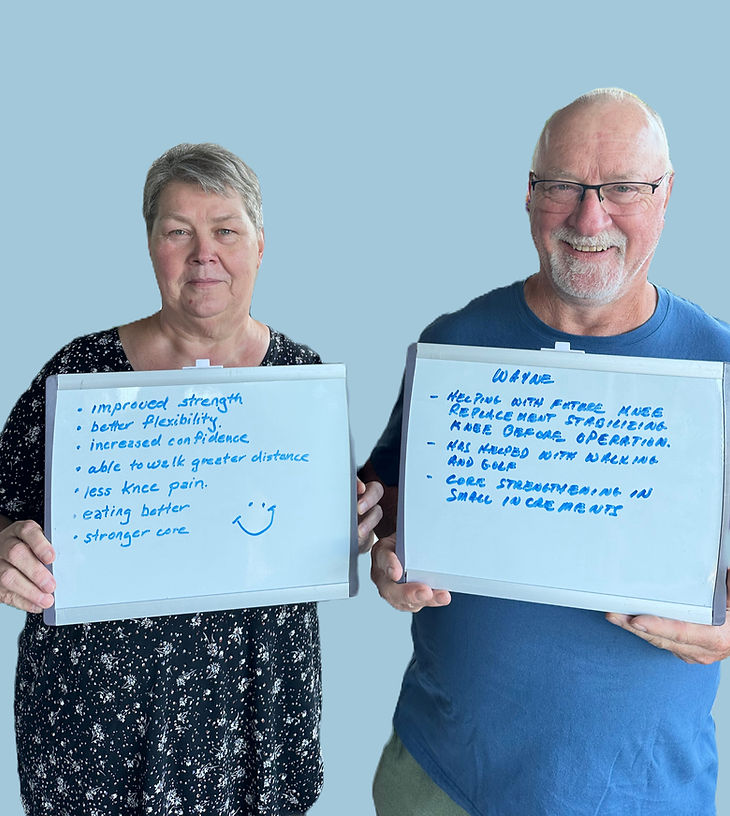 • improved strength
• better flexibility.
• increased confidence
• able to walk greater distance
• less knee pain.
• eating better
• stronger core
WAYNE
- HELPING WITH FUTURE KNEE
REPLACEMENT STABILIZING
KNEE BEFORE OPERATION.
- HAS HELPED WITH WALKING
AND GOLF
- CORE STRENGTHENING IN
SMALL INCREMENTS